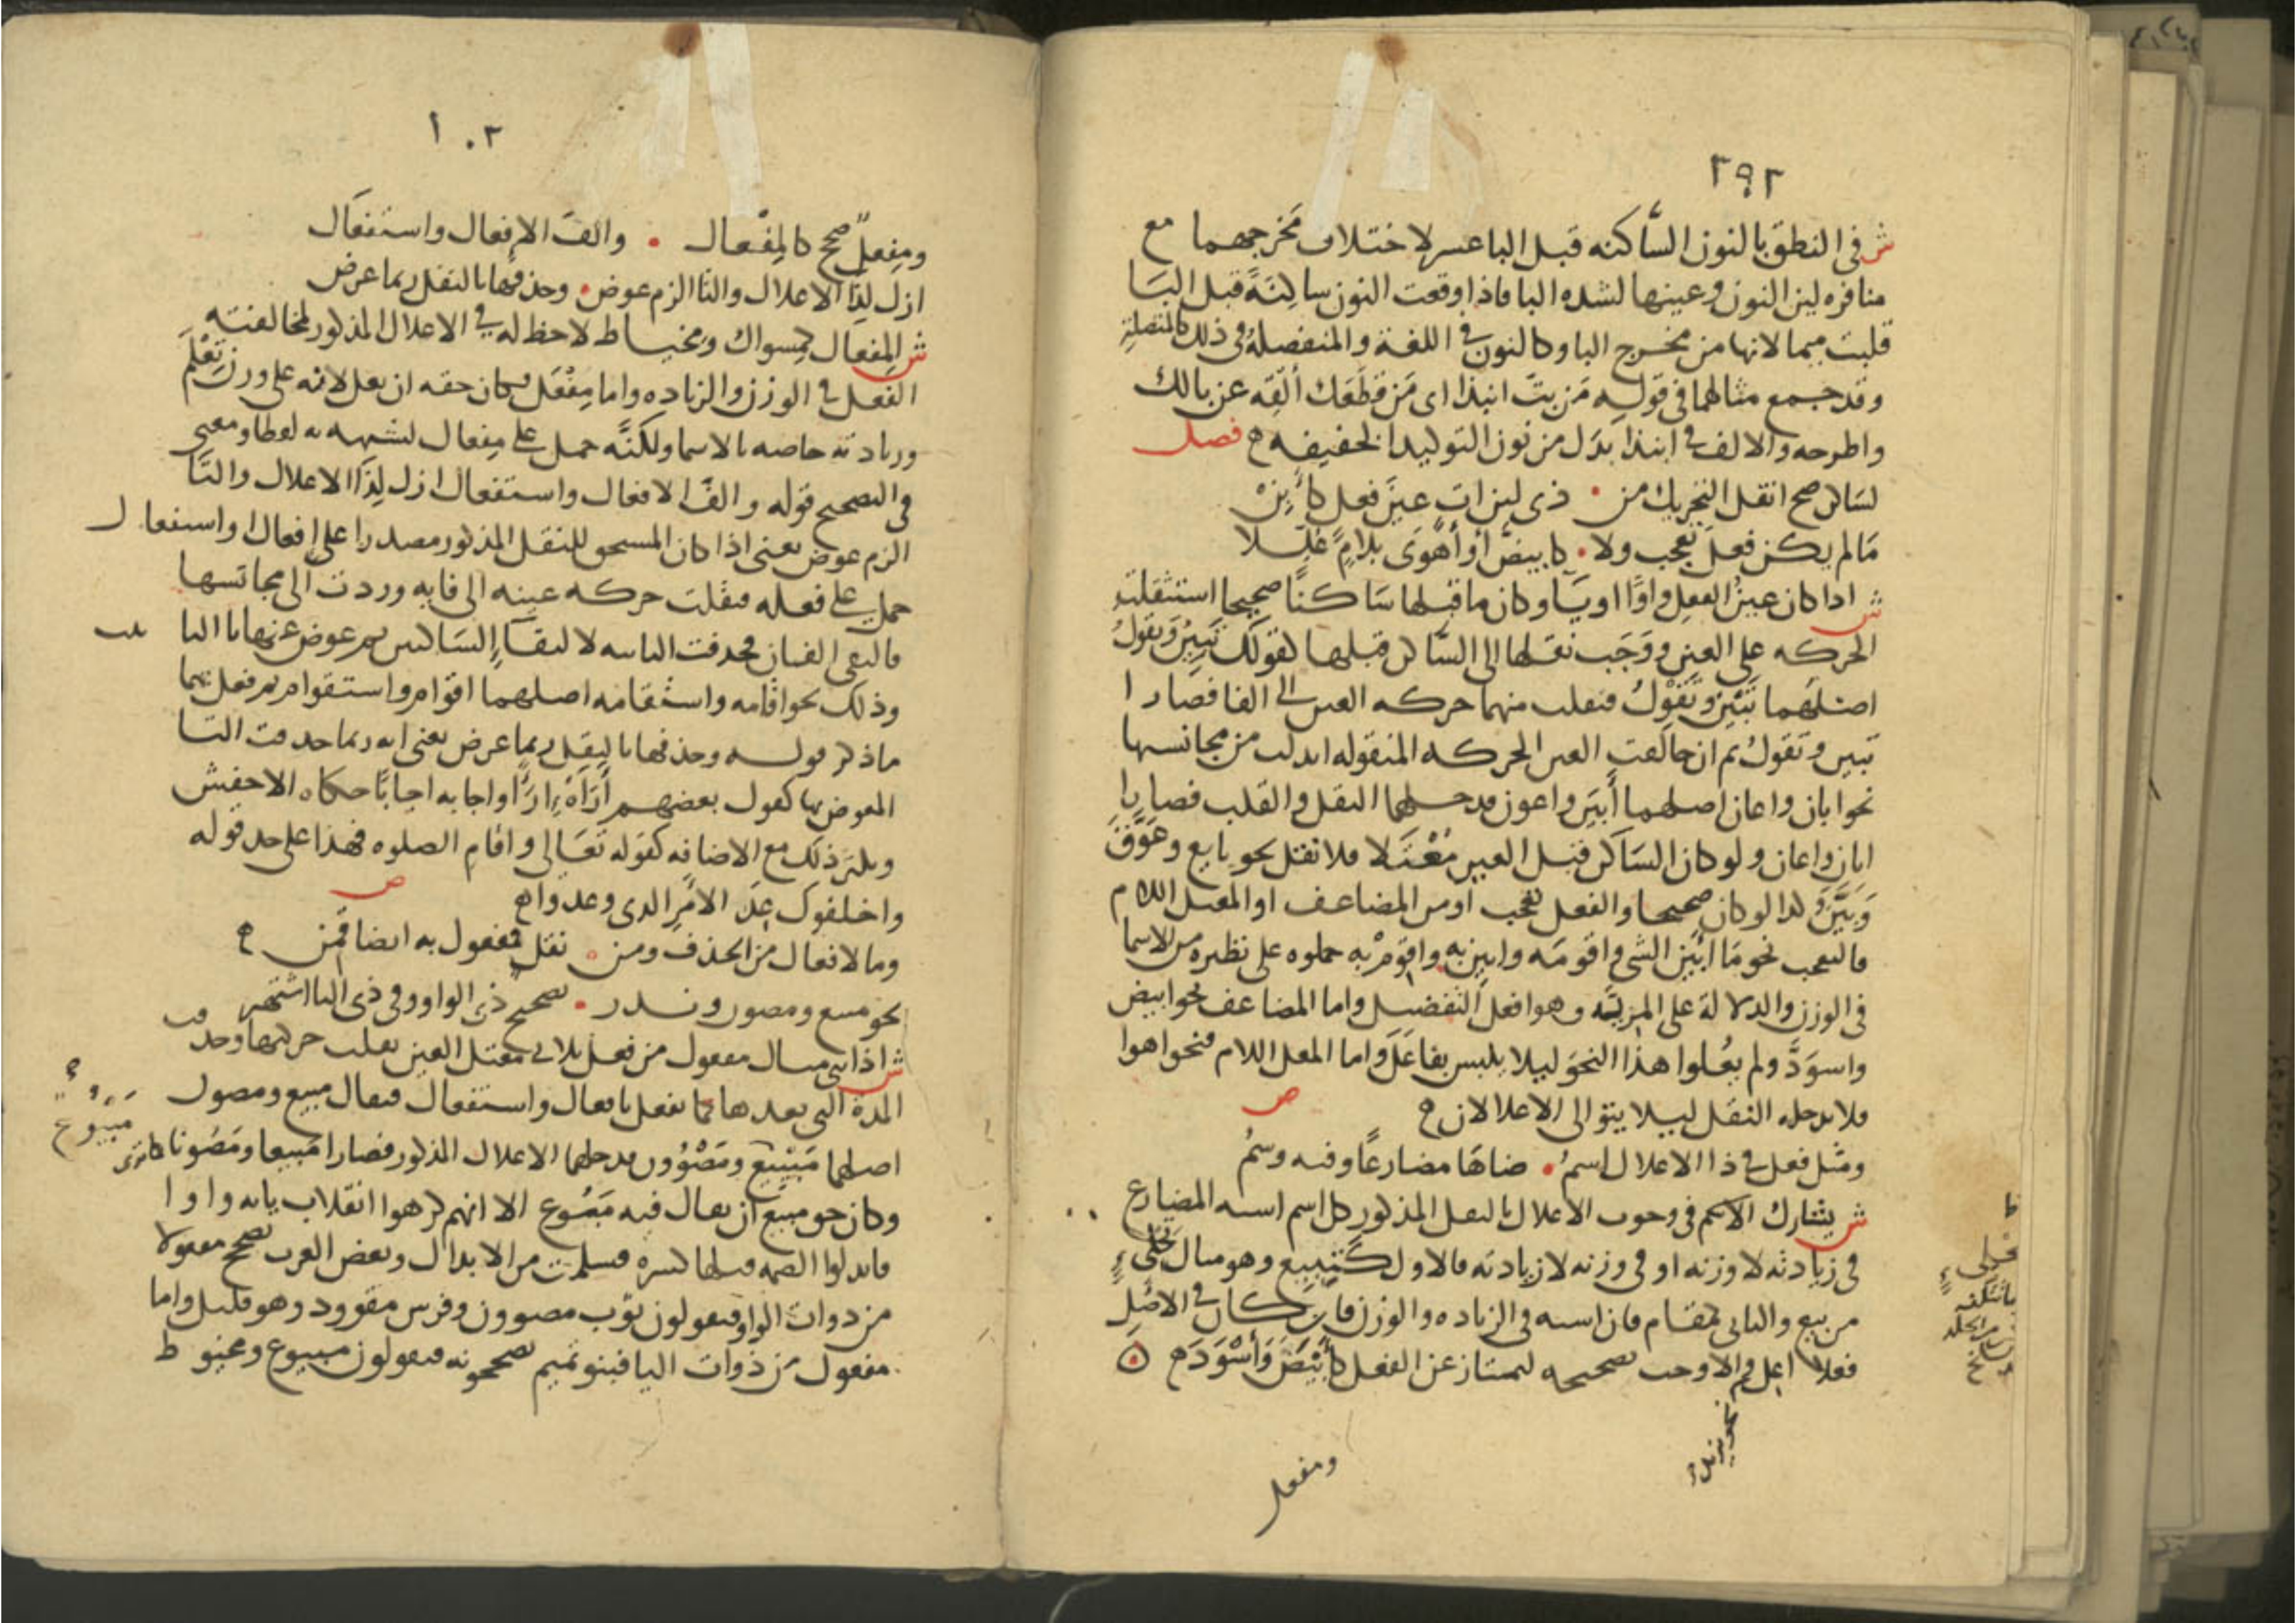 ٢٩٢
ش في النطق بالنون الساكنه قبل البا عسر لاختلاف مخرجهما مع
منافره لين النون وعينها لشده البا فاذا وقعت النون ساكنة قبل البا
قلبت ميما لانها من مخرج البا وكالنون في الغنة والمنفصلة في ذلك كالمتصلة
وقد جمع مثالهما في قوله من بت انبذا اي من قطعك القه عن بالك
واطرحه والالف في انبذا بدل من نون التوكيد الخفيفه ه فصل
لساكن صح انقل التحريك من • ذي لين ات عين فعل كابن
ما لم يكن فعل تعجب ولا • كابيض او اهوى بلام عللا
ش اذا كان عين الفعل واوا او يا وكان ما قبلها ساكنا صحيحا استثقلت
الحركه على العين ووجب نقلها الى الساكن قبلها كقولك تبين وتقول
اصلهما تبين وتقول فنقلت منهما حركه العين الى الفا فصارا
تبين وتقول ثم ان خالفت العين الحركه المنقوله ابدلت من مجانسها
نحو ابان واعان اصلهما ابين واعون فدخلهما النقل والقلب فصارا
ابان واعان ولو كان الساكن قبل العين معتلا فلا نقل نحو بايع وعوق
وبين وكذا لو كان صحيحا والفعل تعجب او من المضاعف او المعتل اللام
فالتعجب نحو ما ابين الشي واقومه وابين به واقوم به حملوه على نظيره من الاسما
في الوزن والدلالة على المزية وهو افعل التفضيل واما المضاعف نحو ابيض
واسود ولم يعلوا هذا النحو ليلا يلبس بفاعل واما المعل اللام فنحو اهوا
فلا يدخله النقل ليلا يتوالى الاعلالان ه ص
ومثل فعل في ذا الاعلال اسم • ضاهى مضارعا وفيه وسم
ش يشارك الاسم في وجوب الاعلال بالنقل المذكور كل اسم اشبه المضارع
في زيادته لا وزنه او في وزنه لا زيادته فالاول كتبيع وهو مثال تحلئ
من بيع والثاني كمقام فان اشبه في الزياده والوزن فان كان في الاصل
فعلا اعل والا وجب تصحيحه ليمتاز عن الفعل كابيض واسود ه
نحو يزيد
ومفعل
١٠٣
ومفعل صحح كالمفعال • والف الافعال واستفعال
ازل لذا الاعلال والتا الزم عوض • وحذفها بالنقل ربما عرض
ش المفعال كمسواك ومخياط لاحظ له في الاعلال المذكور لمخالفته
الفعل في الوزن والزياده واما مفعل فكان حقه ان يعل لانه على وزن تعلم
وزيادته خاصه بالاسما ولكنه حمل على مفعال لشبهه به لفظا ومعنى
في التصحيح قوله والف الافعال واستفعال ازل لذا الاعلال والتا
الزم عوض يعني اذا كان المستحق للنقل المذكور مصدرا على افعال واستفعال
حمل على فعله فنقلت حركه عينه الى فايه وردت الى مجانسها
فالتقى الفان فحذفت الثانيه لالتقا الساكنين ثم عوض عنها تا التا
وذلك نحو اقامه واستقامه اصلهما اقوام واستقوام ثم فعل بهما
ما ذكر قوله وحذفها بالنقل ربما عرض يعني انه ربما حذفت التا
المعوض بها كقول بعضهم اراه اراا واجابه اجابا حكاه الاخفش
ويكثر ذلك مع الاضافه كقوله تعالى واقام الصلوه فهذا على حد قوله
واخلفوك عد الامر الذي وعدوا ه ص
وما لافعال من الحذف ومن • نقل فمفعول به ايضا قمن ه
نحو مبيع ومصون وندر • تصحيح ذي الواو وفي ذي اليا اشتهر
ش اذا بني مثال مفعول من فعل ثلاثي معتل العين نقلت حركتها وحذفت
المدة التي بعدها كما يفعل بافعال واستفعال فيقال مبيع ومصون
اصلهما مبيوع ومصوون فدخلهما الاعلال المذكور فصارا مبيعا ومصونا كما ترى
وكان حق مبيع ان يقال فيه مبوع الا انهم كرهوا انقلاب يايه واوا
فابدلوا الضمه قبلها كسره فسلمت من الابدال وبعض العرب تصحح مفعولا
من ذوات الواو فيقولون ثوب مصوون وفرس مقوود وهو قليل واما
مفعول من ذوات اليا فبنو تميم تصححونه فيقولون مبيوع ومخيوط
مبيوع